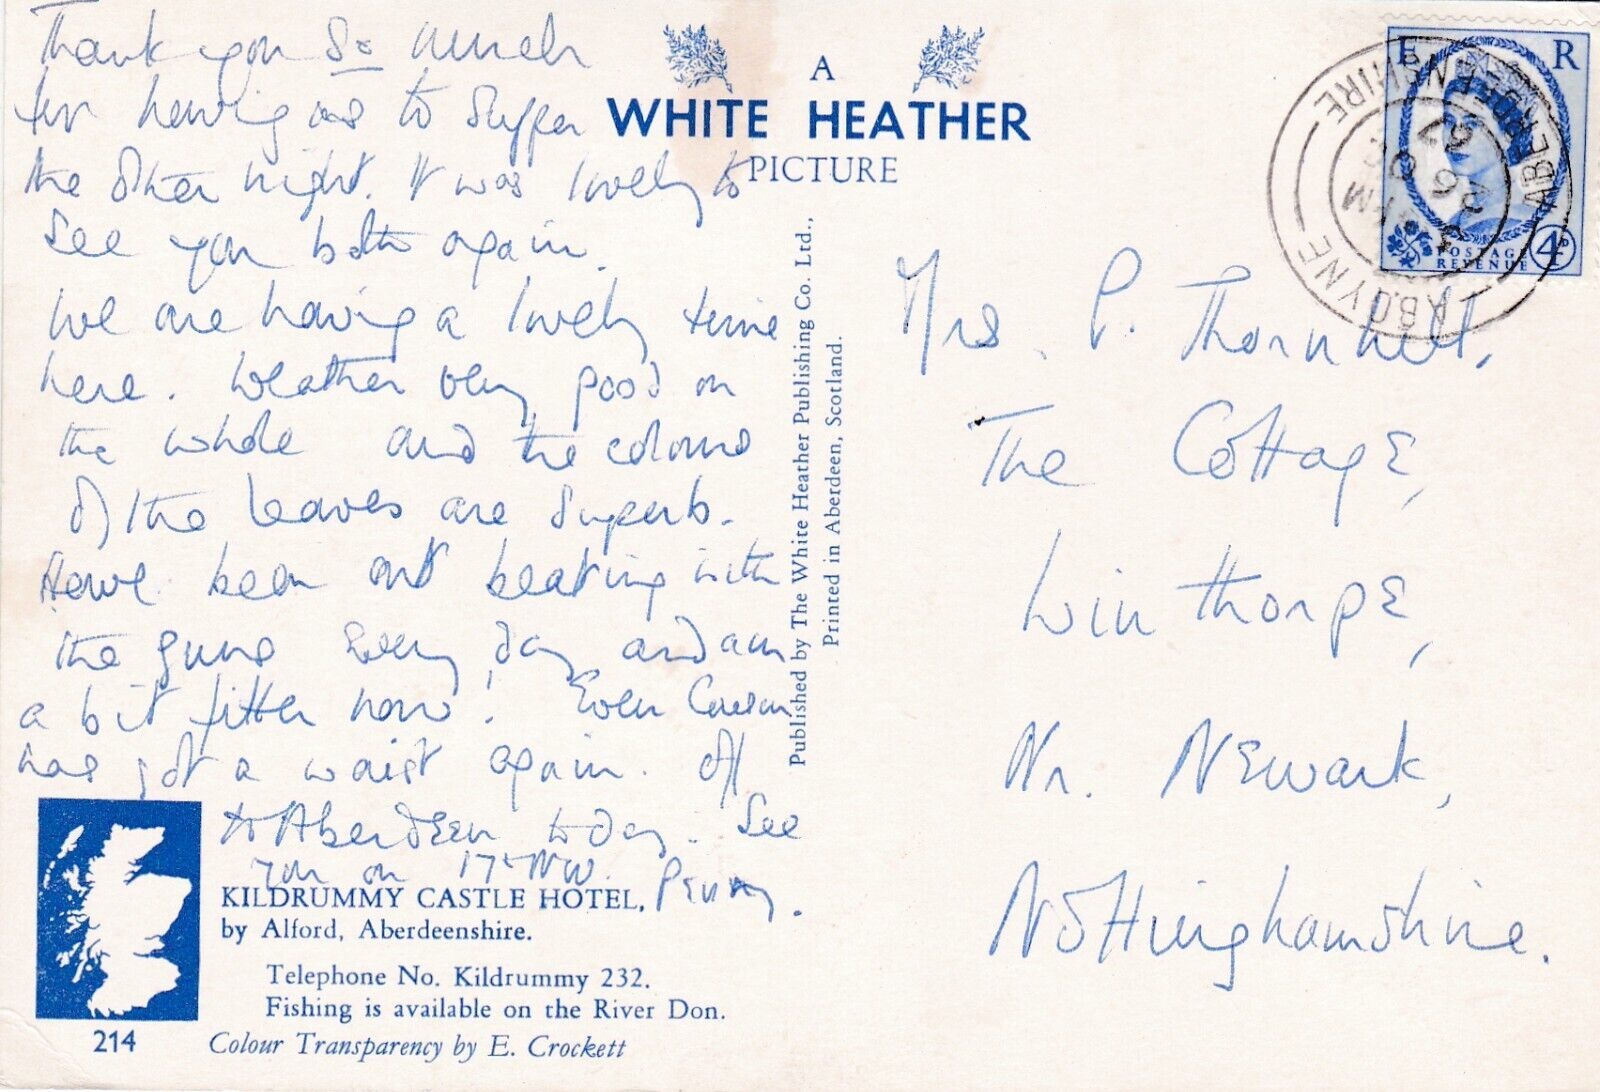 Thank you So much
for having us to supper
the other night. It was lovely to
see you both again.
We are having a lovely time
here. Weather very good on
the whole and the colours
of the leaves are superb.
Have been out beating with
the guns every day and am
a bit fitter now! Even
has got a waist again. Off
to Aberdeen today. See
you on 17th Nov. Penny.
A
WHITE HEATHER
PICTURE
Published by The White Heather Publishing Co. Ltd.,
Printed in Aberdeen, Scotland.
KILDRUMMY CASTLE HOTEL,
by Alford, Aberdeenshire.
Telephone No. Kildrummy 232.
Fishing is available on the River Don.
214
Colour Transparency by E. Crockett
E R
POSTAGE
REVENUE
4D
ABOYNE
ABERDEENSHIRE
PM
26 OC
67
Mrs. P. Thornhill,
The Cottage,
Winthorpe,
Nr. Newark,
Nottinghamshire.